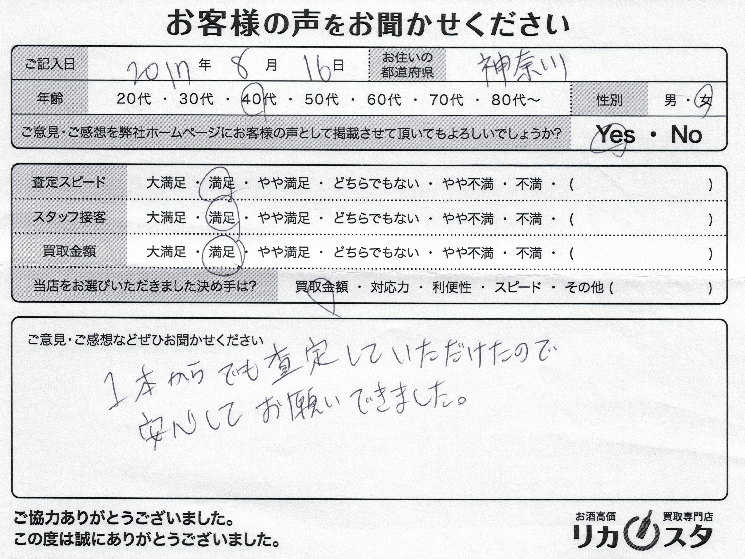 お客様の声をお聞かせください
ご記入日 2017年 8月 16日 お住いの都道府県 神奈川
年齢 20代・30代・40代・50代・60代・70代・80代～ 性別 男・女
ご意見・ご感想を弊社ホームページにお客様の声として掲載させて頂いてもよろしいでしょうか? Yes・No
査定スピード 大満足・満足・やや満足・どちらでもない・やや不満・不満・( )
スタッフ接客 大満足・満足・やや満足・どちらでもない・やや不満・不満・( )
買取金額 大満足・満足・やや満足・どちらでもない・やや不満・不満・( )
当店をお選びいただきました決め手は? 買取金額・対応力・利便性・スピード・その他( )
ご意見・ご感想などぜひお聞かせください
1本からでも査定していただけたので
安心してお願いできました。
ご協力ありがとうございました。
この度は誠にありがとうございました。
お酒高価 買取専門店
リカスタ